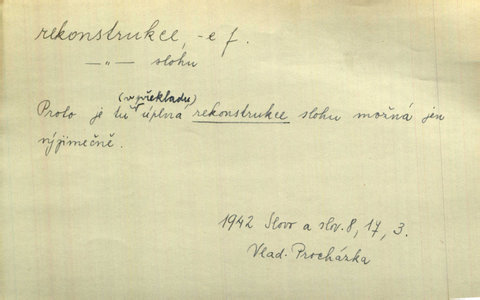 rekonstrukce, -e f.
—„— slohu
(v překladu)
Proto je tu úplná rekonstrukce slohu možná jen
výjimečně.
1942 Slovo a slov. 8, 17, 3.
Vlad. Procházka